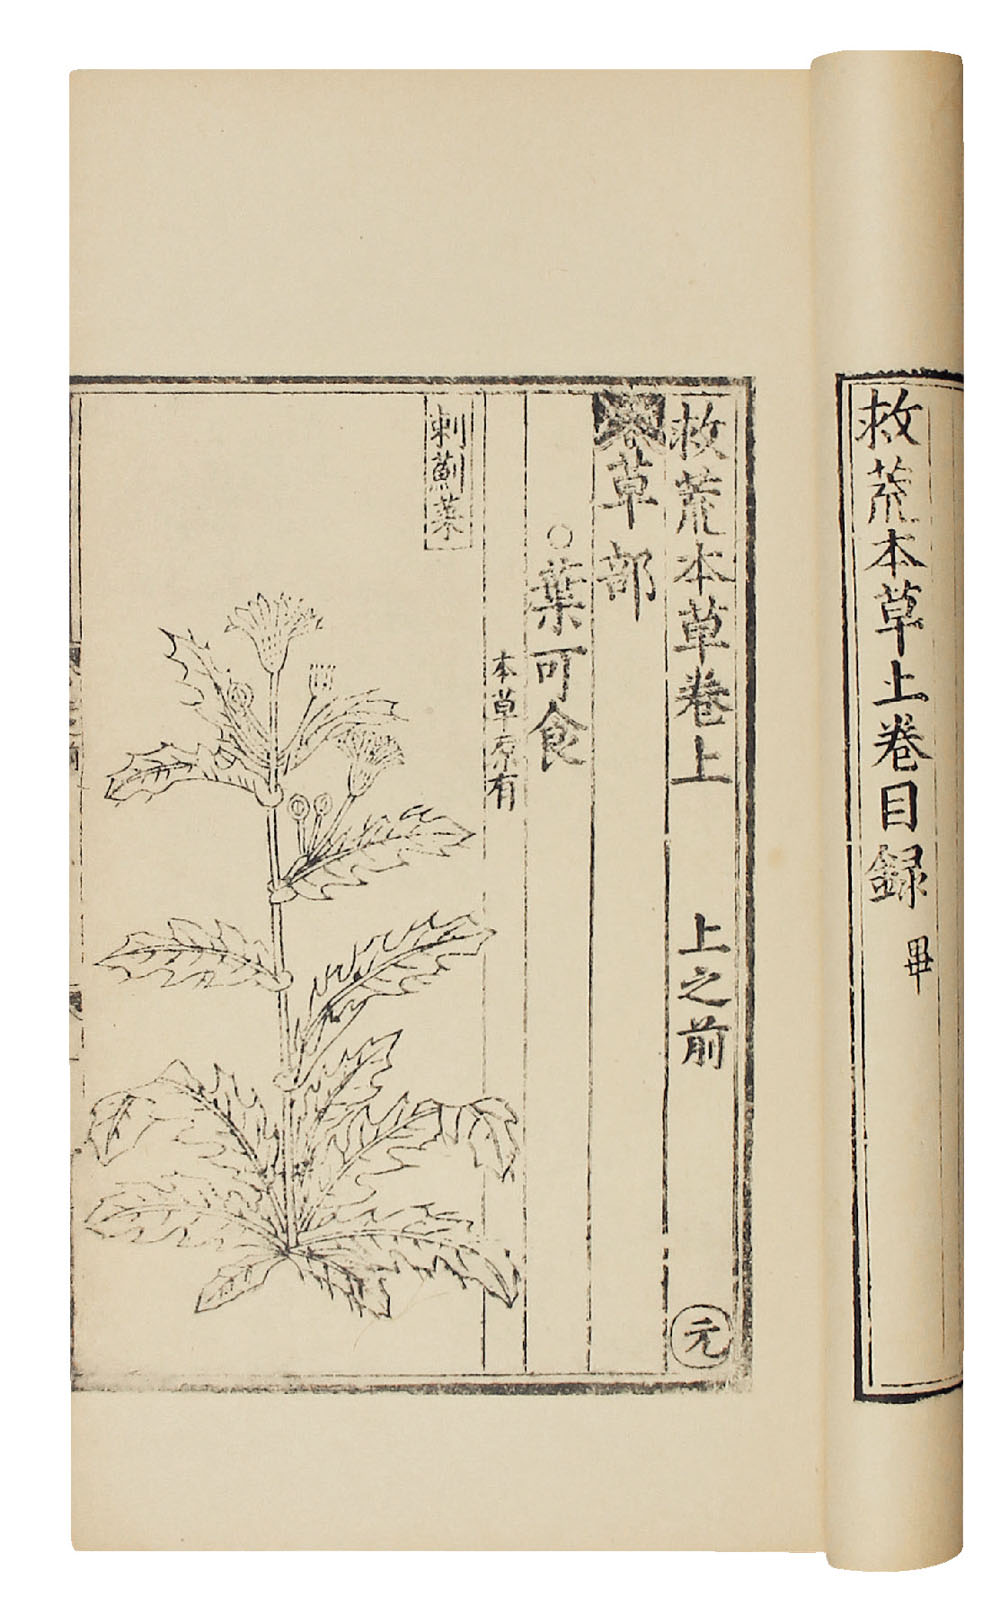 救荒本草上卷目録 畢
救荒本草卷上 上之前 元
草部
○葉可食
本草原有
刺薊菜